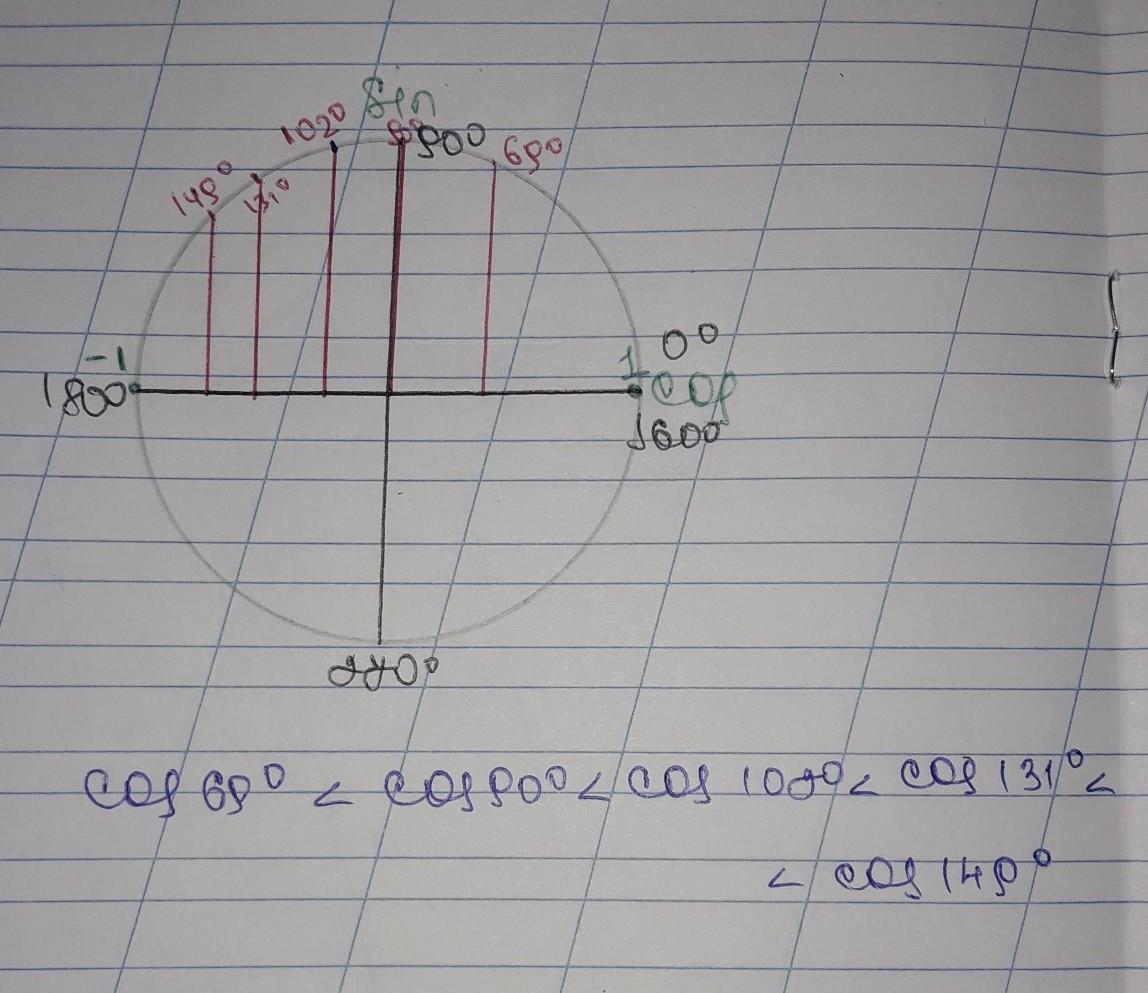 sin
102° 90° 90° 69°
149° 131°
-1 1 0°
180° cos
360°
270°
cos 69° < cos 90° < cos 102° < cos 131° <
< cos 149°